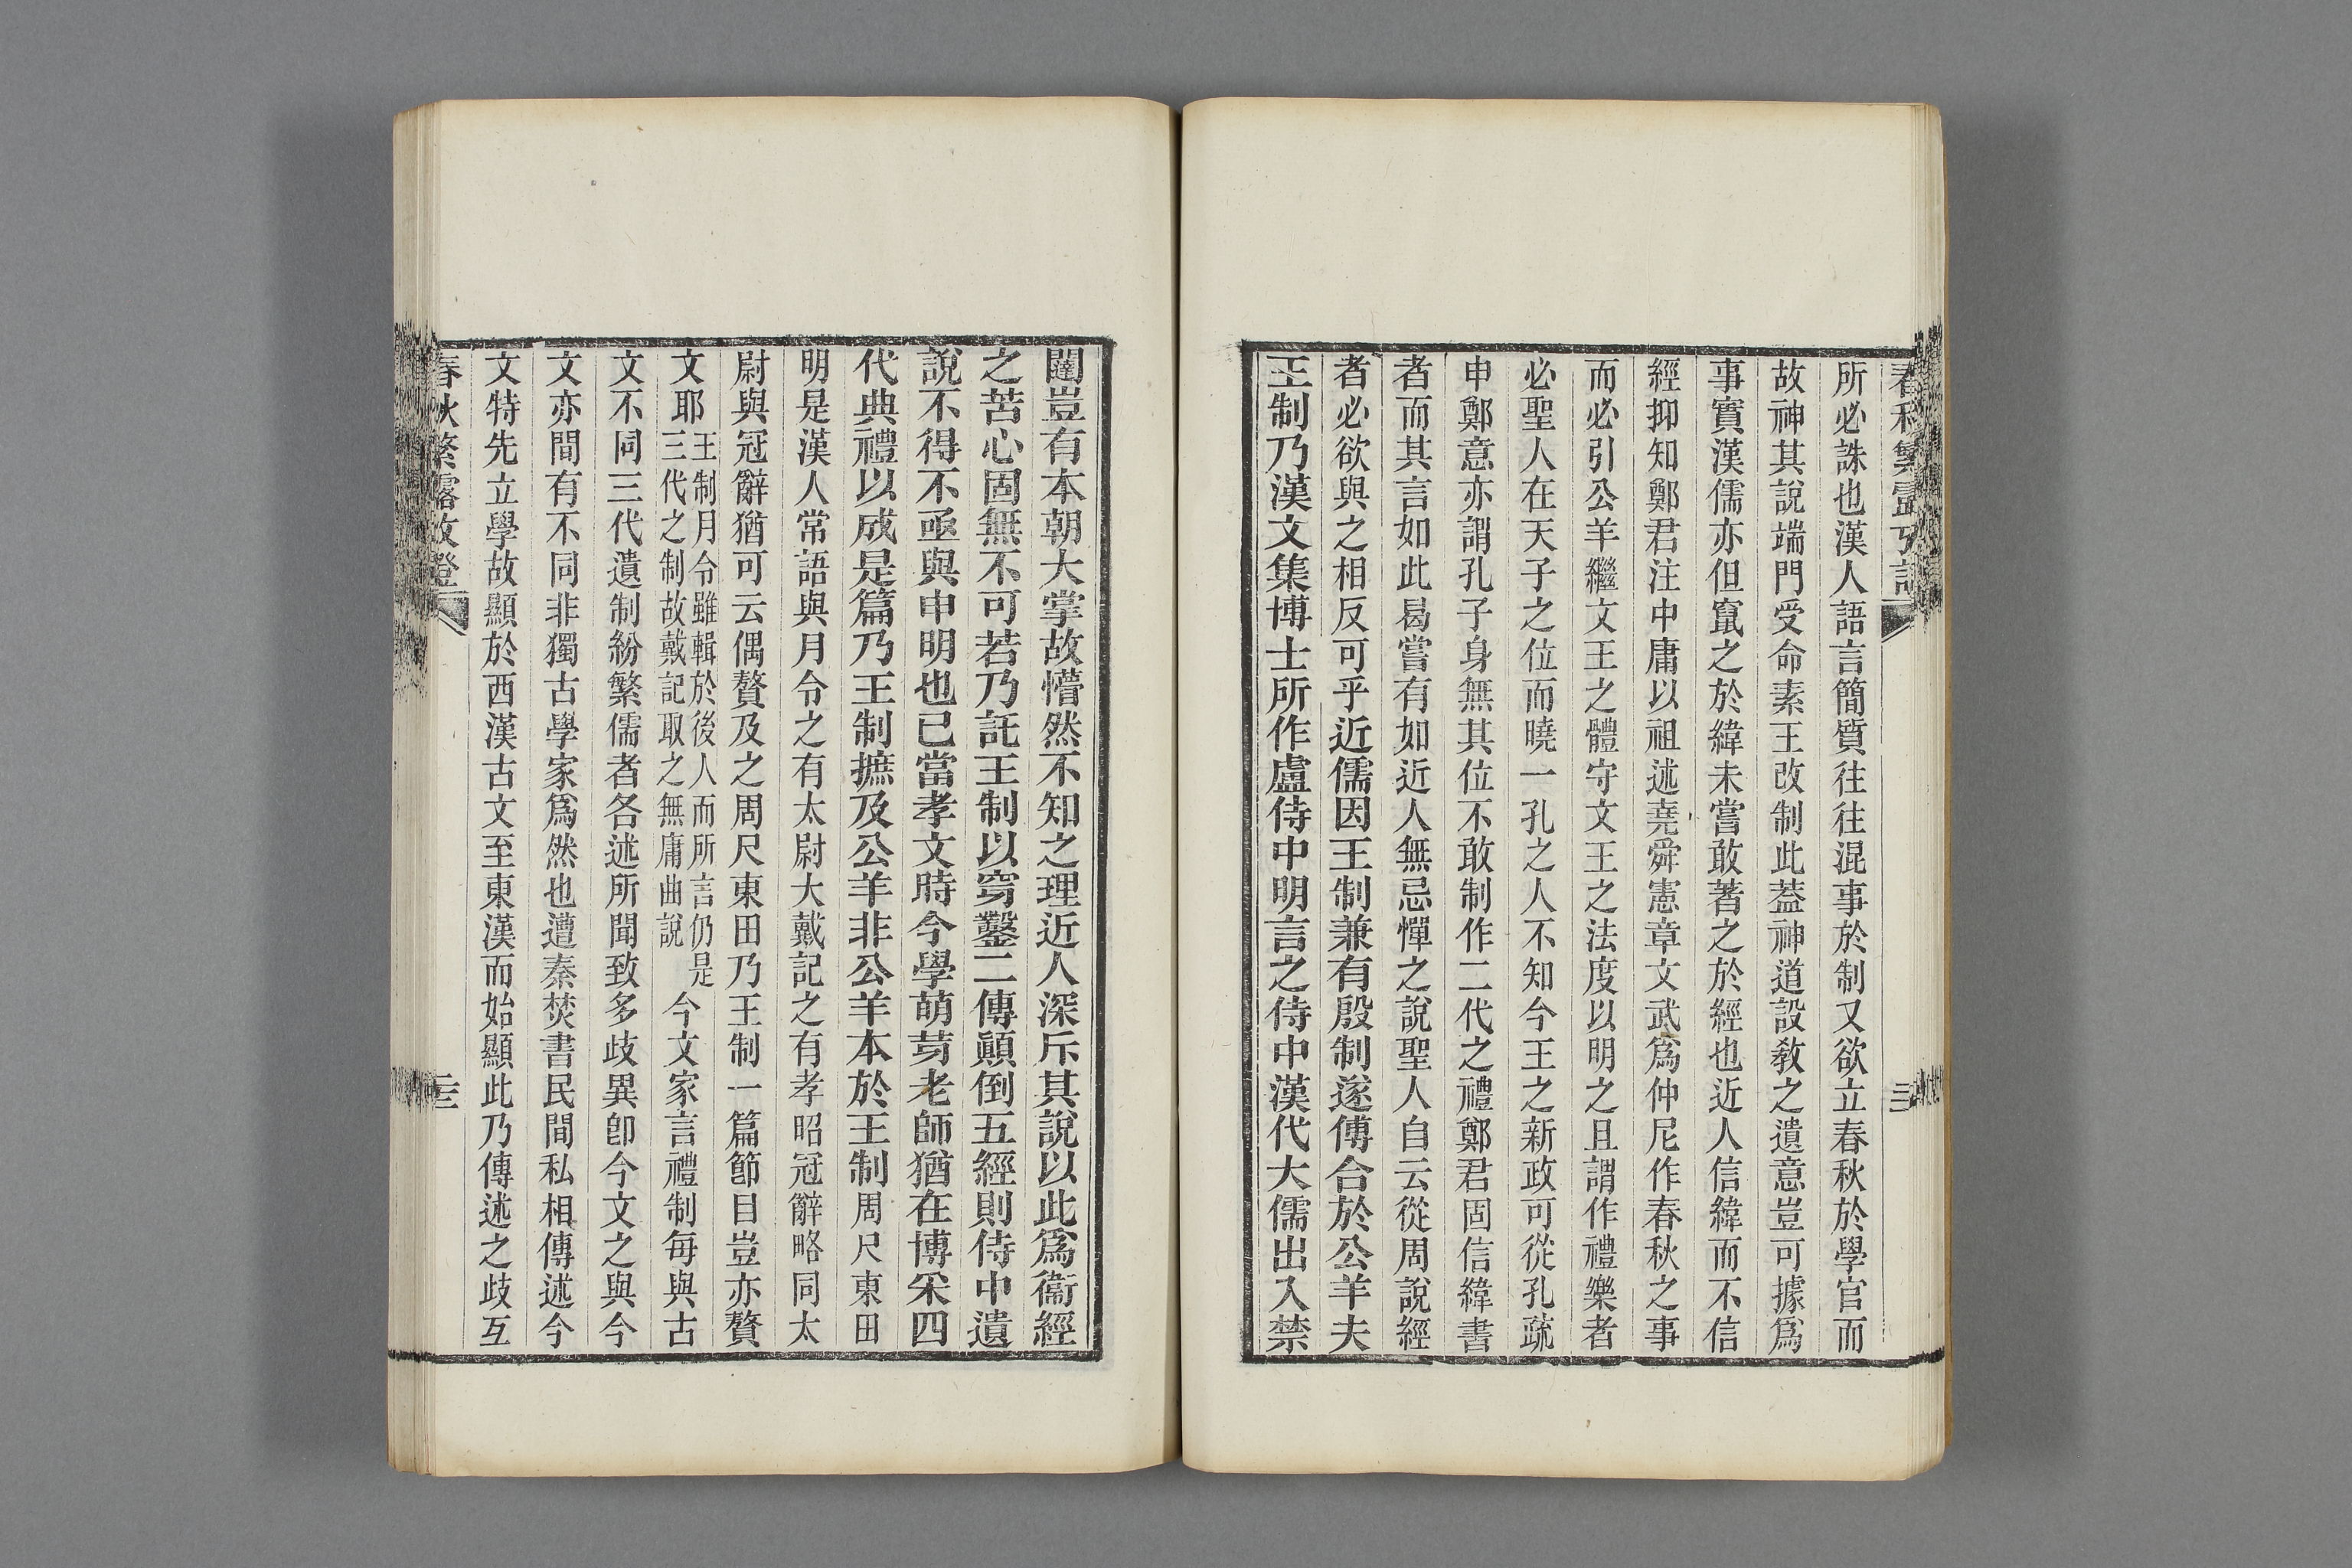 所必誅也漢人語言簡質往往混事於制又欲立春秋於學官而
故神其說端門受命素王改制此葢神道設敎之遺意豈可據爲
事實漢儒亦但竄之於緯未嘗敢著之於經也近人信緯而不信
經抑知鄭君注中庸以祖述堯舜憲章文武爲仲尼作春秋之事
而必引公羊繼文王之體守文王之法度以明之且謂作禮樂者
必聖人在天子之位而曉一孔之人不知今王之新政可從孔疏
申鄭意亦謂孔子身無其位不敢制作二代之禮鄭君固信緯書
者而其言如此曷嘗有如近人無忌憚之說聖人自云從周說經
者必欲與之相反可乎近儒因王制兼有殷制遂傅合於公羊夫
王制乃漢文集博士所作盧侍中明言之侍中漢代大儒出入禁
闥豈有本朝大掌故懵然不知之理近人深斥其說以此爲衞經
之苦心固無不可若乃託王制以穿鑿二傳顚倒五經則侍中遺
說不得不亟與申明也已當孝文時今學萌芽老師猶在博采四
代典禮以成是篇乃王制摭及公羊非公羊本於王制周尺東田
明是漢人常語與月令之有太尉大戴記之有孝昭冠辭略同太
尉與冠辭猶可云偶贅及之周尺東田乃王制一篇節目豈亦贅
文耶王制月令雖輯於後人而所言仍是三代之制故戴記取之無庸曲說今文家言禮制每與古
文不同三代遺制紛繁儒者各述所聞致多歧異卽今文之與今
文亦間有不同非獨古學家爲然也遭秦焚書民間私相傳述今
文特先立學故顯於西漢古文至東漢而始顯此乃傳述之歧互
春秋繁露攷證